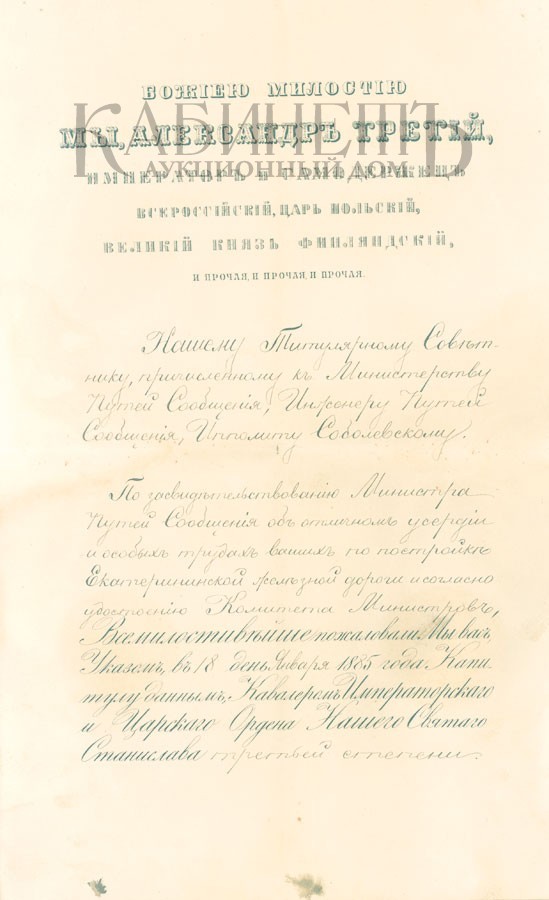 БОЖІЕЮ МИЛОСТІЮ
КАБИНЕТЪ
МЫ, АЛЕКСАНДРЪ ТРЕТІЙ,
АУКЦИОННЫЙ ДОМ
ИМПЕРАТОРЪ И САМОДЕРЖЕЦЪ
ВСЕРОССІЙСКІЙ, ЦАРЬ ПОЛЬСКІЙ,
ВЕЛИКІЙ КНЯЗЬ ФИНЛЯНДСКІЙ,
И ПРОЧАЯ, И ПРОЧАЯ, И ПРОЧАЯ.
Нашему Титулярному Совѣт-
нику, причисленному къ Министерству
Путей Сообщенія, Инженеру Путей
Сообщенія, Ипполиту Соболевскому.
По засвидѣтельствованію Министра
Путей Сообщенія объ отличномъ усердіи
и особыхъ трудахъ вашихъ по постройкѣ
Екатерининской желѣзной дороги и согласно
удостоенію Комитета Министровъ,
Всемилостивѣйше пожаловали Мы васъ
Указомъ, въ 18 день Января 1885 года Капи-
тулу даннымъ, Кавалеромъ Императорскаго
и Царскаго Ордена Нашего Святаго
Станислава третьей степени.